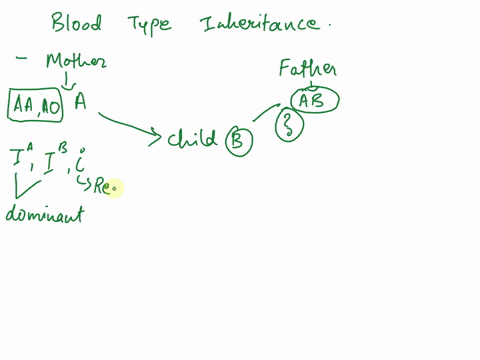 Blood Type Inheritance.
- Mother
Father
AA, AO A
AB
Child B
I^A, I^B, i
Re.
dominant